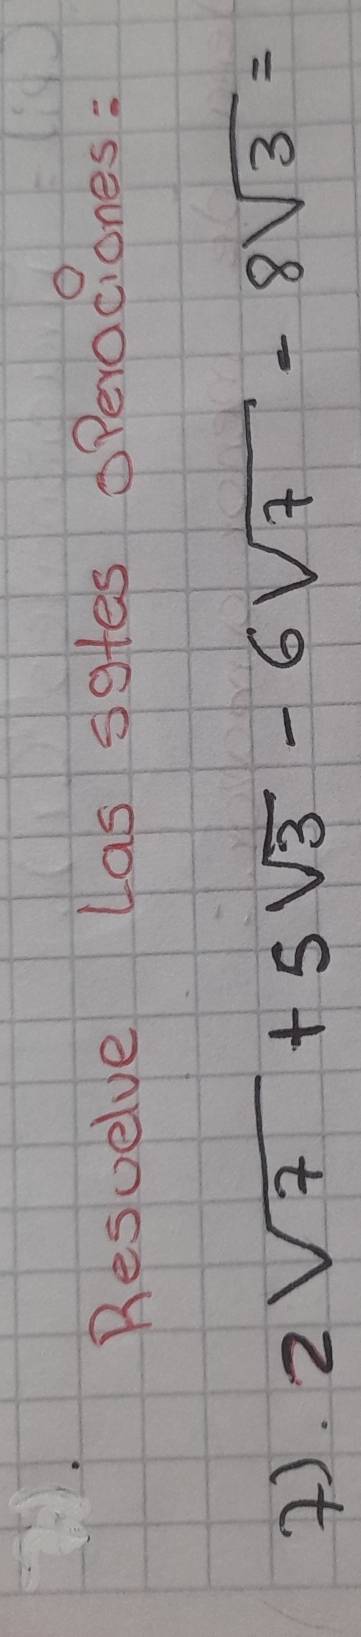 Resuelve Las sgtes operaciones:
7). 2√7 + 5√3 - 6√7 - 8√3 =